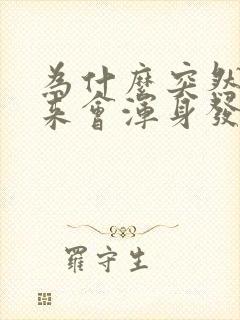 為什麼突然
來會渾身發
羅守生